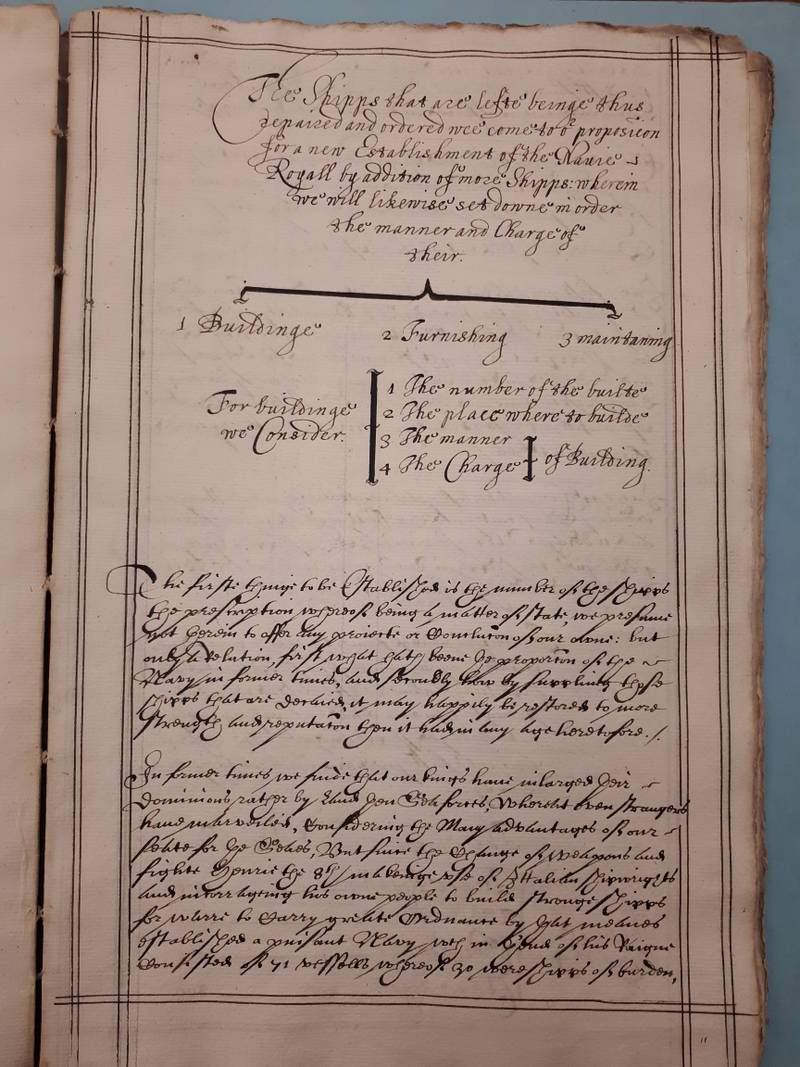 The Shipps that are lefte beinge thus
repaired and ordered wee come to or proposicon
for a new Establishment of the Navie
Royall by addition of more Shipps: wherein
we will likewise set downe in order
the manner and Charge of
their.
1 Buildinge 2 Furnishing 3 maintaning
For buildinge
we Consider.
1 The number of the builte
2 The place where to builde
3 The manner
4 The Charge
of Building.
The firste thinge to be Established is the number of the shipps
the prescription whereof being a matter of state, we presume
not herein to offer any proiecte or Conclucon of our owne: but
only a Relution, first what hath beene ye proporcon of the
Navy in former times, and secondly how by supplying those
shipps that are decaied, it may happily be restored to more
strength and reputacon then it had in any age heretofore. /.
In former times we finde that our kings have inlarged their
dominions rather by Land then Sea forces, Whereat even strangers
have marveiled, Considering the Many advantages of our
seate for ye Seaes, But since the Change of weapons and
fighte Henrie the 8th makeinge use of Ittalian shipwrights
and incorrageing his owne people to build stronge shipps
for warre to Carry greate Ordnance by that meanes
established a puisant Navy wch in ye end of his Raigne
Consisted of 71 vessells whereof 30 were shipps of burden,